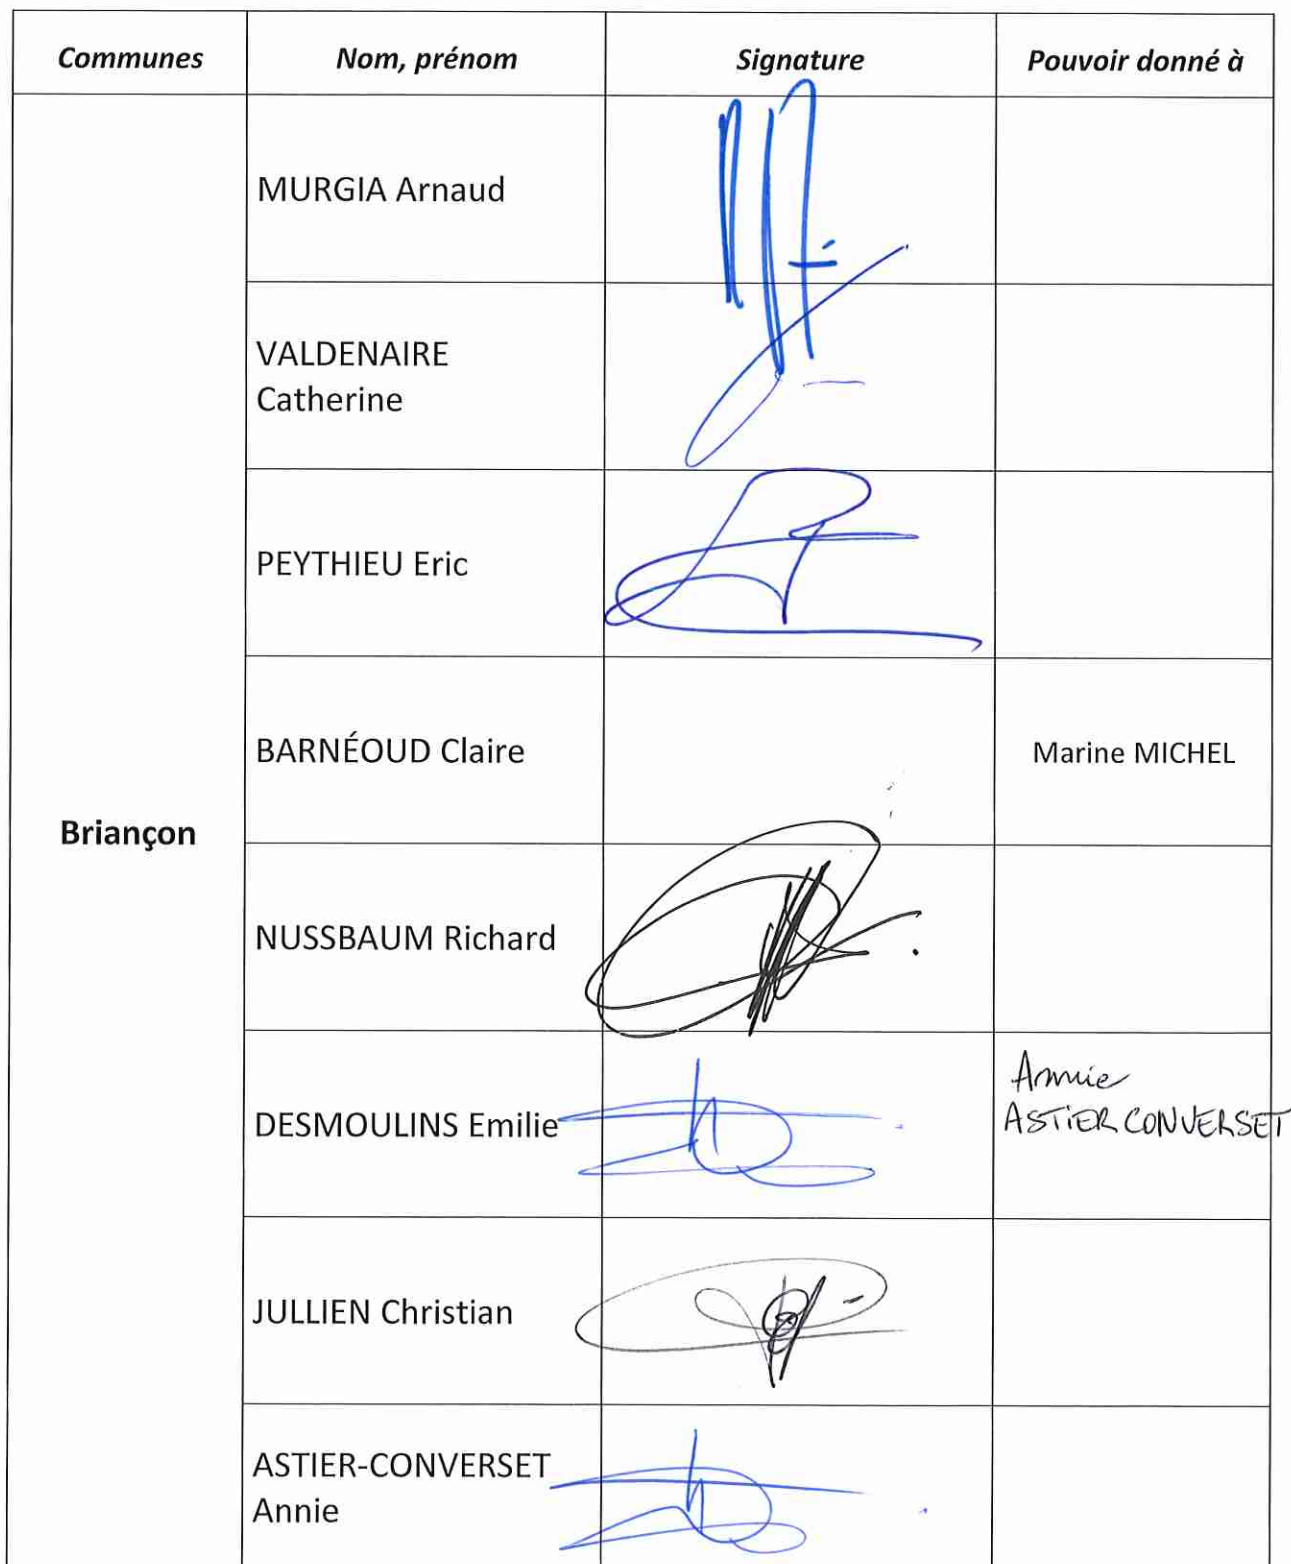 Communes Nom, prénom Signature Pouvoir donné à
MURGIA Arnaud
VALDENAIRE
Catherine
PEYTHIEU Eric
BARNÉOUD Claire Marine MICHEL
Briançon
NUSSBAUM Richard
Annie
DESMOULINS Emilie ASTIER CONVERSET
JULLIEN Christian
ASTIER-CONVERSET
Annie